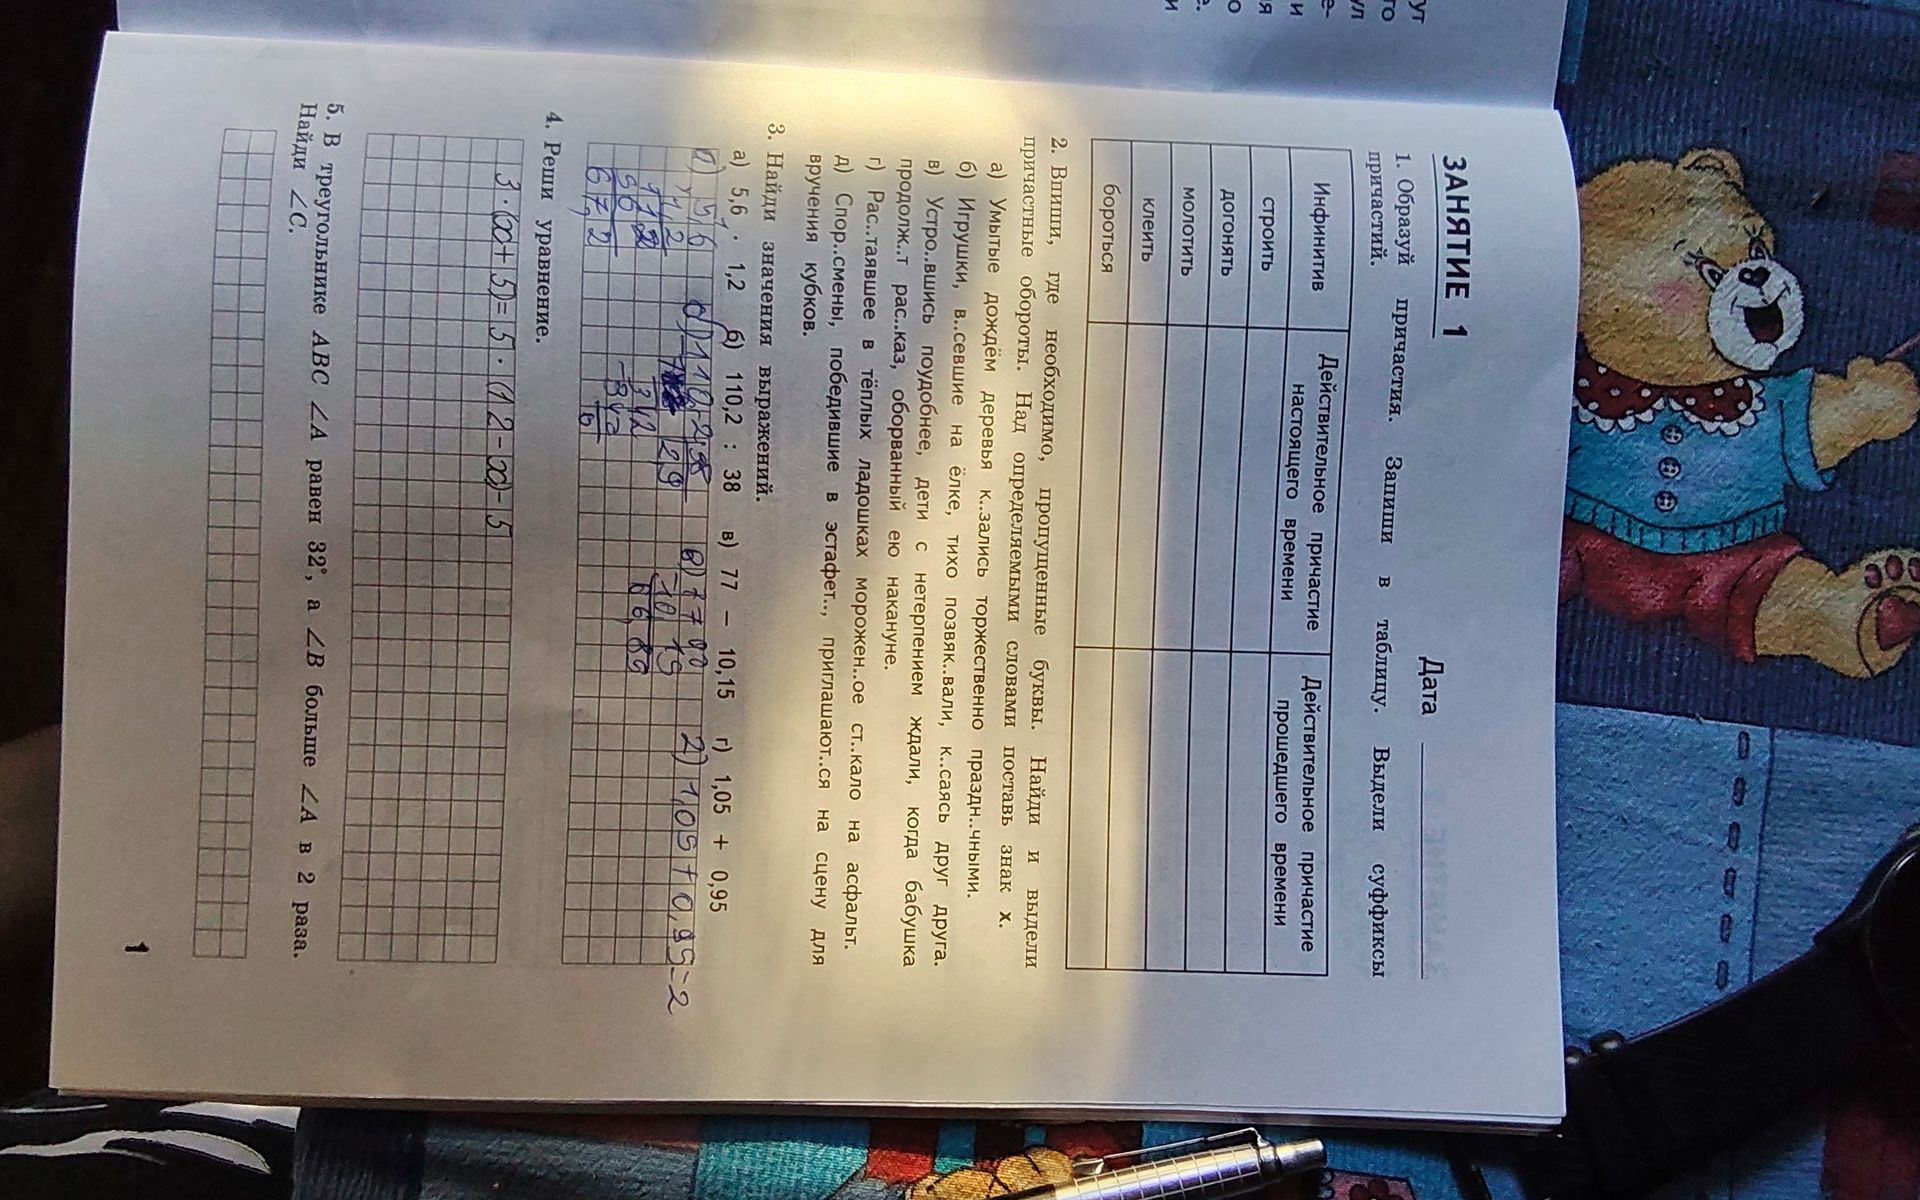 ЗАНЯТИЕ 1
Дата
1. Образуй причастия. Запиши в таблицу. Выдели суффиксы
причастий.
Инфинитив
Действительное причастие
настоящего времени
Действительное причастие
прошедшего времени
строить
догонять
молотить
клеить
бороться
2. Впиши, где необходимо, пропущенные буквы. Найди и выдели
причастные обороты. Над определяемыми словами поставь знак х.
а) Умытые дождём деревья к..зались торжественно праздн..чными.
б) Игрушки, в..севшие на ёлке, тихо позвяк..вали, к..саясь друг друга.
в) Устро..вшись поудобнее, дети с нетерпением ждали, когда бабушка
продолж..т рас..каз, оборванный ею накануне.
г) Рас..таявшее в тёплых ладошках морожен..ое ст..кало на асфальт.
д) Спор..смены, победившие в эстафет.., приглашают..ся на сцену для
вручения кубков.
3. Найди значения выражений.
а) 5,6 · 1,2 б) 110,2 : 38 в) 77 − 10,15 г) 1,05 + 0,95
а) 5,6
1,2
112
56
67,2
110,2
29
342
-342
0
в) 77,00
-10,15
66,85
2) 1,05+0,95=2
4. Реши уравнение.
3·(x+5)=5·(12-x)-5
5. В треугольнике ABC ∠A равен 32°, а ∠B больше ∠A в 2 раза.
Найди ∠C.
1